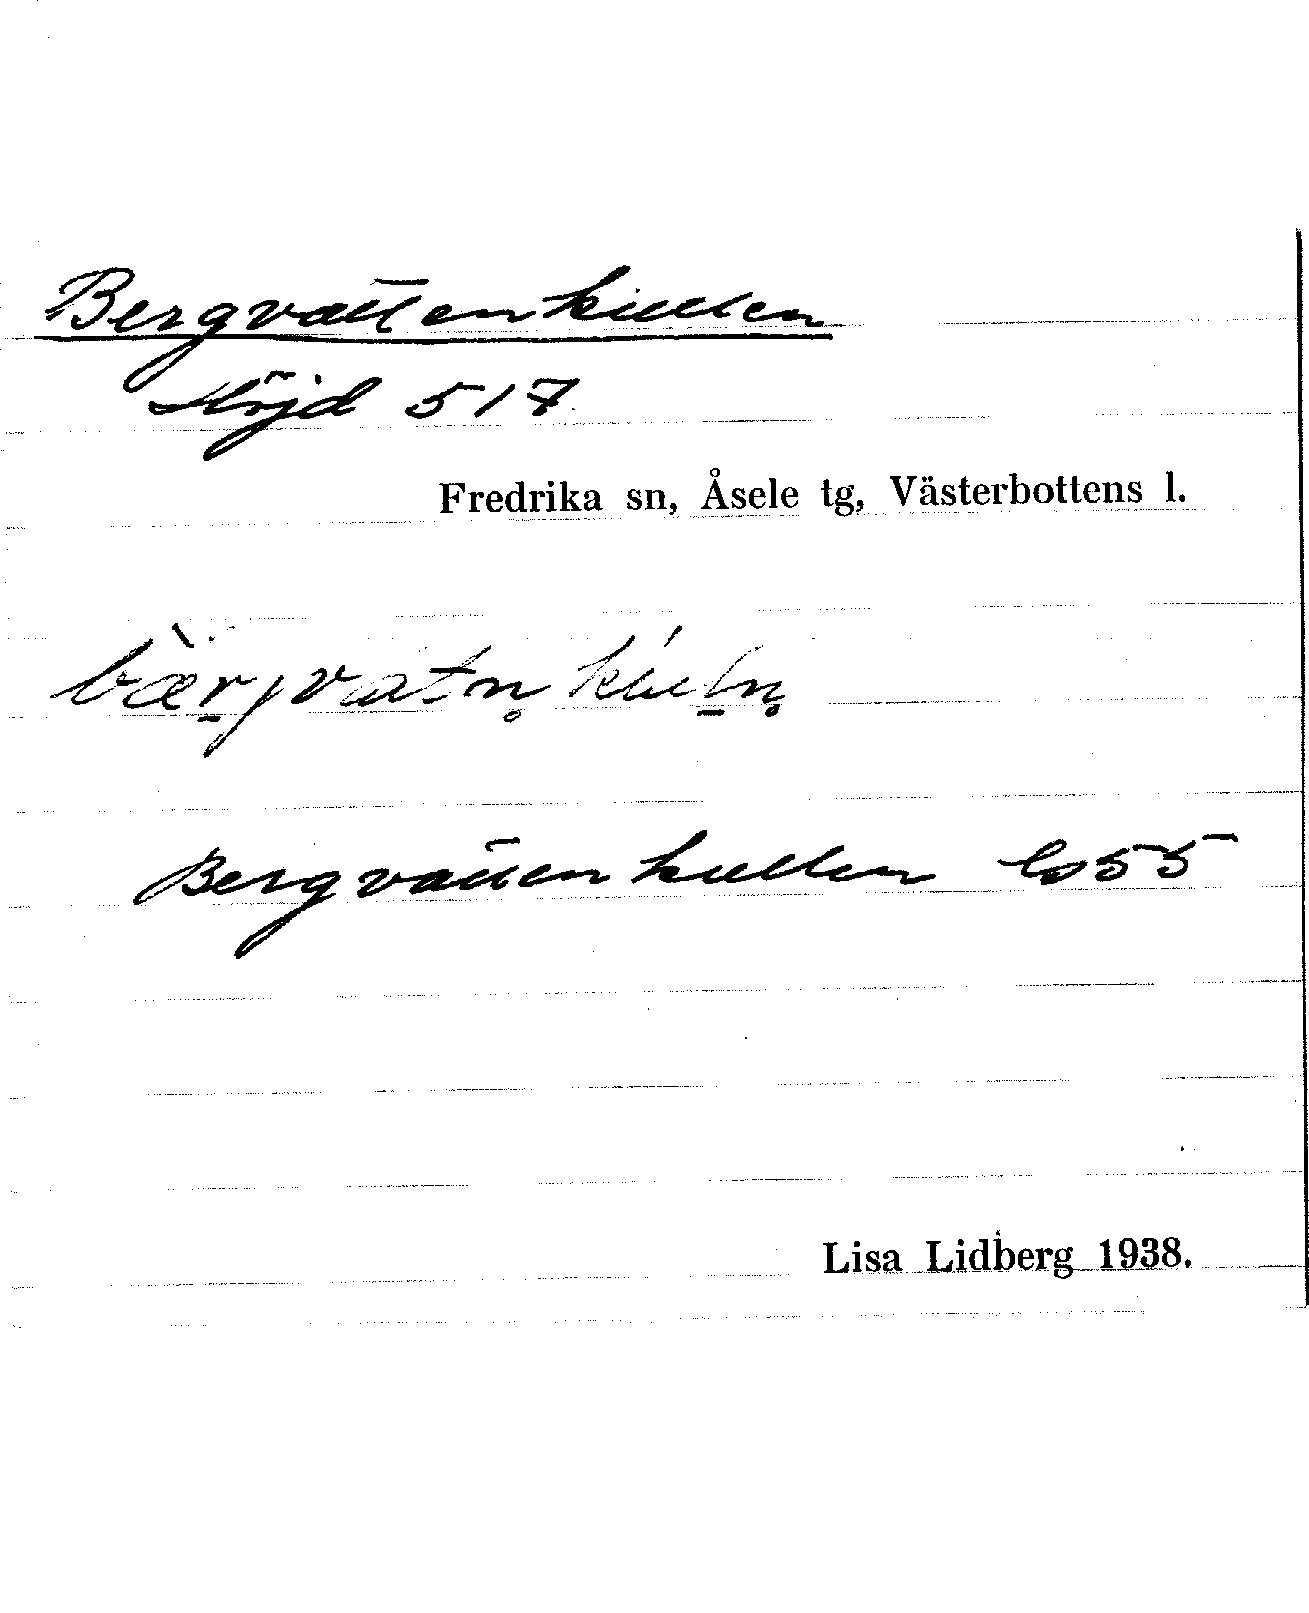 Bergvattenkullen
Höjd 517
Fredrika sn, Åsele tg, Västerbottens l.
Bergvattenkullen 55
Lisa Lidberg 1938.